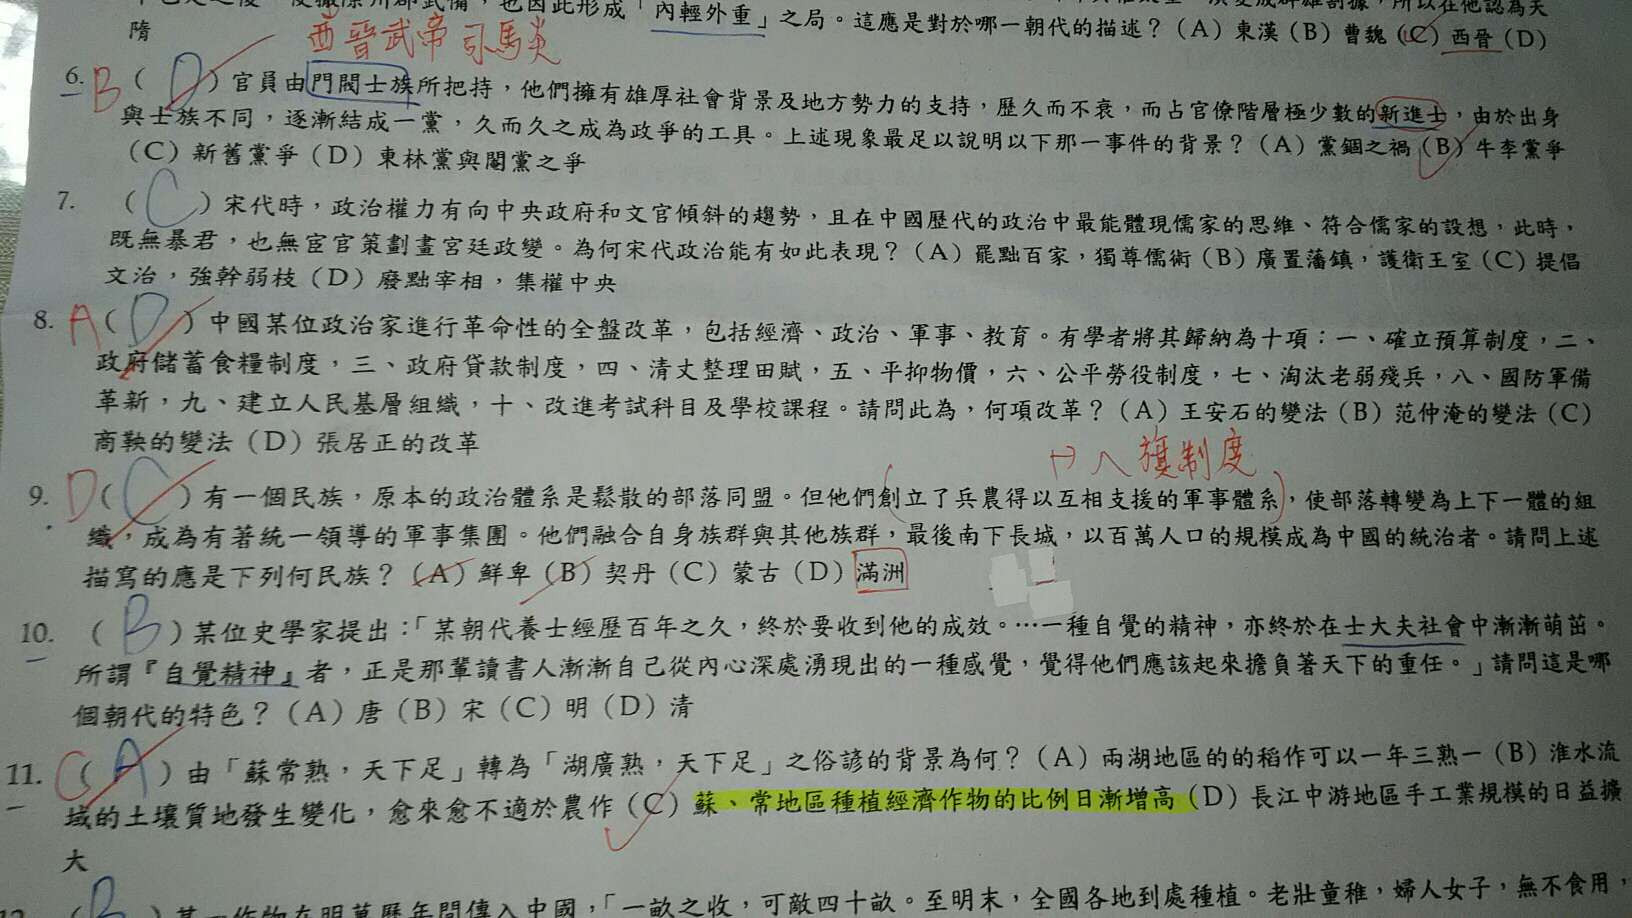 也因此形成「內輕外重」之局。這應是對於哪一朝代的描述？（A）東漢（B）曹魏（C）西晉（D）
隋
西晉武帝司馬炎
6. B（D）官員由門閥士族所把持，他們擁有雄厚社會背景及地方勢力的支持，歷久而不衰，而占官僚階層極少數的新進士，由於出身
與士族不同，逐漸結成一黨，久而久之成為政爭的工具。上述現象最足以說明以下那一事件的背景？（A）黨錮之禍（B）牛李黨爭
（C）新舊黨爭（D）東林黨與閹黨之爭
7. （C）宋代時，政治權力有向中央政府和文官傾斜的趨勢，且在中國歷代的政治中最能體現儒家的思維、符合儒家的設想，此時，
既無暴君，也無宦官策劃畫宮廷政變。為何宋代政治能有如此表現？（A）罷黜百家，獨尊儒術（B）廣置藩鎮，護衛王室（C）提倡
文治，強幹弱枝（D）廢黜宰相，集權中央
8. A（D）中國某位政治家進行革命性的全盤改革，包括經濟、政治、軍事、教育。有學者將其歸納為十項：一、確立預算制度，二、
政府儲蓄食糧制度，三、政府貸款制度，四、清丈整理田賦，五、平抑物價，六、公平勞役制度，七、淘汰老弱殘兵，八、國防軍備
革新，九、建立人民基層組織，十、改進考試科目及學校課程。請問此為，何項改革？（A）王安石的變法（B）范仲淹的變法（C）
商鞅的變法（D）張居正的改革
八旗制度
9. D（C）有一個民族，原本的政治體系是鬆散的部落同盟。但他們創立了兵農得以互相支援的軍事體系，使部落轉變為上下一體的組
織，成為有著統一領導的軍事集團。他們融合自身族群與其他族群，最後南下長城，以百萬人口的規模成為中國的統治者。請問上述
描寫的應是下列何民族？（A）鮮卑（B）契丹（C）蒙古（D）滿洲
10. （B）某位史學家提出：「某朝代養士經歷百年之久，終於要收到他的成效。…一種自覺的精神，亦終於在士大夫社會中漸漸萌茁。
所謂『自覺精神』者，正是那輩讀書人漸漸自己從內心深處湧現出的一種感覺，覺得他們應該起來擔負著天下的重任。」請問這是哪
個朝代的特色？（A）唐（B）宋（C）明（D）清
11. C（A）由「蘇常熟，天下足」轉為「湖廣熟，天下足」之俗諺的背景為何？（A）兩湖地區的的稻作可以一年三熟一（B）淮水流
域的土壤質地發生變化，愈來愈不適於農作（C）蘇、常地區種植經濟作物的比例日漸增高（D）長江中游地區手工業規模的日益擴
大
（B）某一作物在明萬曆年間傳入中國，「一畝之收，可敵四十畝。至明末，全國各地到處種植。老壯童稚，婦人女子，無不食用，